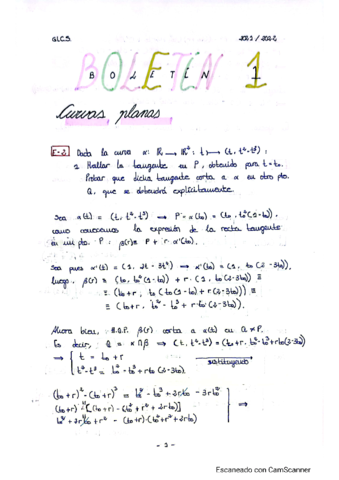 G.L.C.S. 2021 / 2022
BOLETÍN 1
Curvas planas
E-2. Dada la curva α: ℝ → ℝ²: t ↦ (t, t²-t³):
Hallar la tangente en P, obtenido para t=t₀.
Probar que dicha tangente corta a α en otro pto.
Q, que se obtendrá explícitamente.
Sea α(t) = (t, t²-t³) ⇒ P = α(t₀) = (t₀, t₀²(1-t₀)),
como conocemos la expresión de la recta tangente
en un pto. P: β(r) ≡ P + r·α'(t₀).
Sea pues α'(t) = (1, 2t-3t²) ⇒ α'(t₀) = (1, t₀(2-3t₀)),
luego, β(r) ≡ (t₀, t₀²(1-t₀)) + r·(1, t₀(2-3t₀)) ≡
≡ (t₀+r, t₀(t₀(1-t₀) + r(2-3t₀))) ≡
≡ (t₀+r, t₀² - t₀³ + r·t₀(2-3t₀)).
Ahora bien, β(r) corta a α(t) en Q ≠ P.
Es decir, Q = α ∩ β ⇒ (t, t²-t³) = (t₀+r, t₀²-t₀³+rt₀(2-3t₀))
⇒ { t = t₀+r
t²-t³ = t₀²-t₀³+rt₀(2-3t₀) sustituyendo
(t₀+r)²-(t₀+r)³ = t₀²-t₀³+2rt₀-3rt₀²
⇒
- 1 -
Escaneado con CamScanner